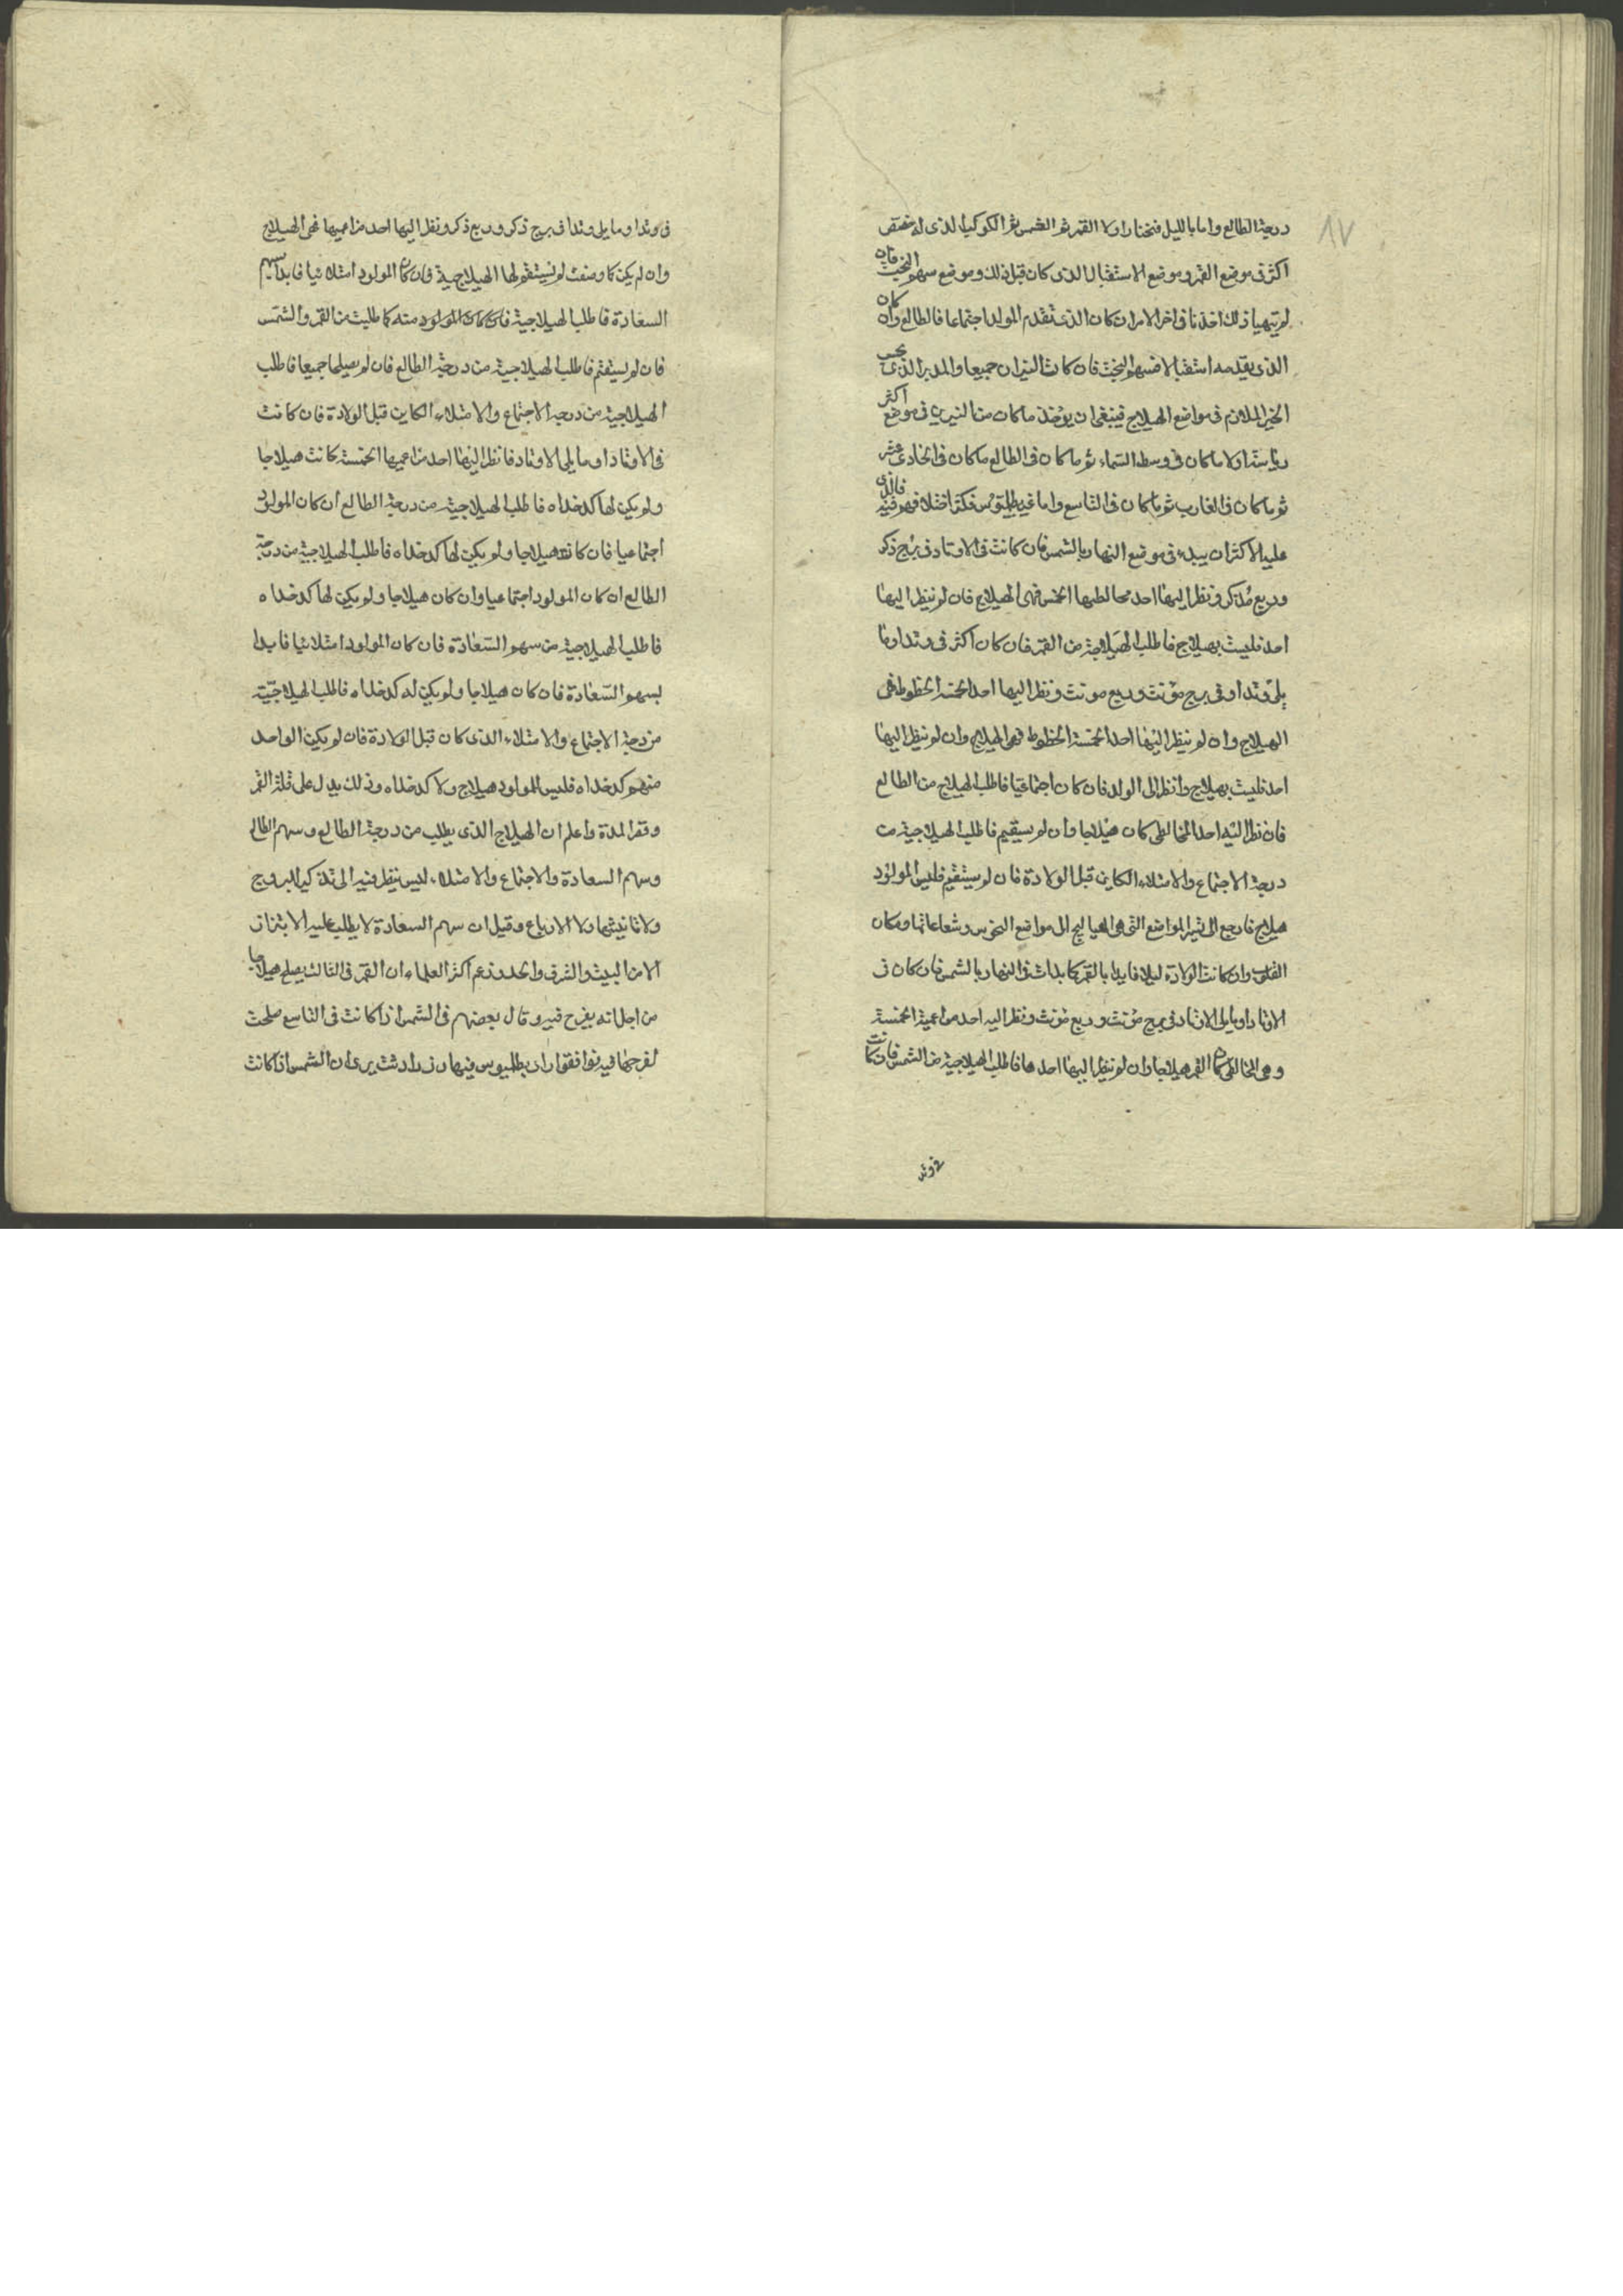 ١٧
درجة الطالع واما بالليل فنختار اولا القمر ثم الشمس ثم الكوكب الذى له خصص
اكثر فى موضع القمر وموضع الاستقبال الذى كان قبل ذلك وموضع سهم البخت فان
لم يتهيا ذلك اخذنا فى اخر الامر ان كان الذى تقدم المولد اجتماعا فالطالع وان كان
الذى يقدمه استقبالا فسهم البخت فان كانت النيران جميعا والمدبر الذى يحب
الخير الملازم فى مواضع الهيلاج فينبغى ان يوخذ ما كان من النيرين فى موضع اكثر
رياسته اولا ما كان فى وسط السماء ثم ما كان فى الطالع ما كان فى الحادى عشر
ثم ما كان فى الغارب ثم ما كان فى التاسع واما غير بطليموس فكثر اختلافهم فيه فالذى
عليه الاكثر ان يبدء فى موضع النهار بالشمس فان كانت فى الاوتاد فى برج ذكر
وربع مذكر ونظر اليها احد مخالطيها الخمس فهى الهيلاج فان لم ينظر اليها
احد فليست بهيلاج فاطلب الهيلاجية من القمر فان كان اكثر فى وتد او ما
يلى وتدا وفى برج مؤنث وربع مونث ونظر اليها احد الخمسة الحظوظ فهى
الهيلاج وان لم ينظر اليها احد الخمسة الحظوظ فهى الهيلاج وان لم ينظر اليها
احد فليست بهيلاج وانظر الى الولد فان كان اجتماعيا فاطلب الهيلاج من الطالع
فان نظر اليه احد المخالطى كان هيلاجا وان لم يستقيم فاطلب الهيلاجية من
درجة الاجتماع والامتلاء الكاين قبل الولادة فان لم يستقيم فليس للمولود
هيلاج فارجع الى تسيير المواضع التى هى الهياليج الى مواضع النحوس وشعاعاتها ومكان
القلوب وان كانت الولادة ليلا فابدا بالقمر كما بدات فى النهار بالشمس فان كان فى
الاوتاد او ما يلى الاوتاد فى برج مؤنث وربع مؤنث ونظر اليه احد مزاعمية الخمسة
وهى المخالطى كان القمر هيلاجا وان لم ينظر اليها احدها فاطلب الهيلاجية من الشمس فان كانت
فى وتد
فى وتد او ما يلى وتدا فى برج ذكر وربع ذكر ونظر اليها احد مزاعميها فهى الهيلاج
وان لم يكن كما وصفت لم يستقم لها الهيلاجية فان كان المولود امتلائيا فابدا بسهم
السعادة فاطلب الهيلاجية فان كان المولود منه كما طلبت من القمر والشمس
فان لم يستقم فاطلب الهيلاجية من درجة الطالع فان لم يصلحا جميعا فاطلب
الهيلاجية من درجة الاجتماع والامتلاء الكاين قبل الولادة فان كانت
فى الاوتاد او ما يلى الاوتاد فانظر اليها احد مزاعميها الخمسة كانت هيلاجا
ولم يكن لها كدخداه فاطلب الهيلاجية من درجة الطالع ان كان المولود
اجتماعيا فان كانت هيلاجا ولم يكن لها كدخداه فاطلب الهيلاجية من درجة
الطالع ان كان المولود اجتماعيا وان كان هيلاجا ولم يكن لها كدخداه
فاطلب الهيلاجية من سهم السعادة فان كان المولود امتلائيا فابدا
بسهم السعادة فان كان هيلاجا ولم يكن له كدخداه فاطلب الهيلاجية
من درجة الاجتماع والامتلاء الذى كان قبل الولادة فان لم يكن الواحد
منهم كدخداه فليس للمولود هيلاج ولا كدخداه وذلك يدل على قلة العمر
وقصر المدة واعلم ان الهيلاج الذى يطلب من درجة الطالع وسهم الطالع
وسهم السعادة والاجتماع والامتلاء ليس ينظر فيه الى تذكير البروج
ولا تانيثها ولا الارباع وقيل ان سهم السعادة لا يطلب عليه الابتزاز
الا من البيت والشرف والحد وزعم اكثر العلماء ان القمر فى الثالث يصلح هيلاجا
من اجل انه يفرح فيه وقال بعضهم فى الشمس اذا كانت فى التاسع صلحت
لفرحها فيه توافقوا راى بطليموس فيها وزرادشت يرى ان الشمس اذا كانت